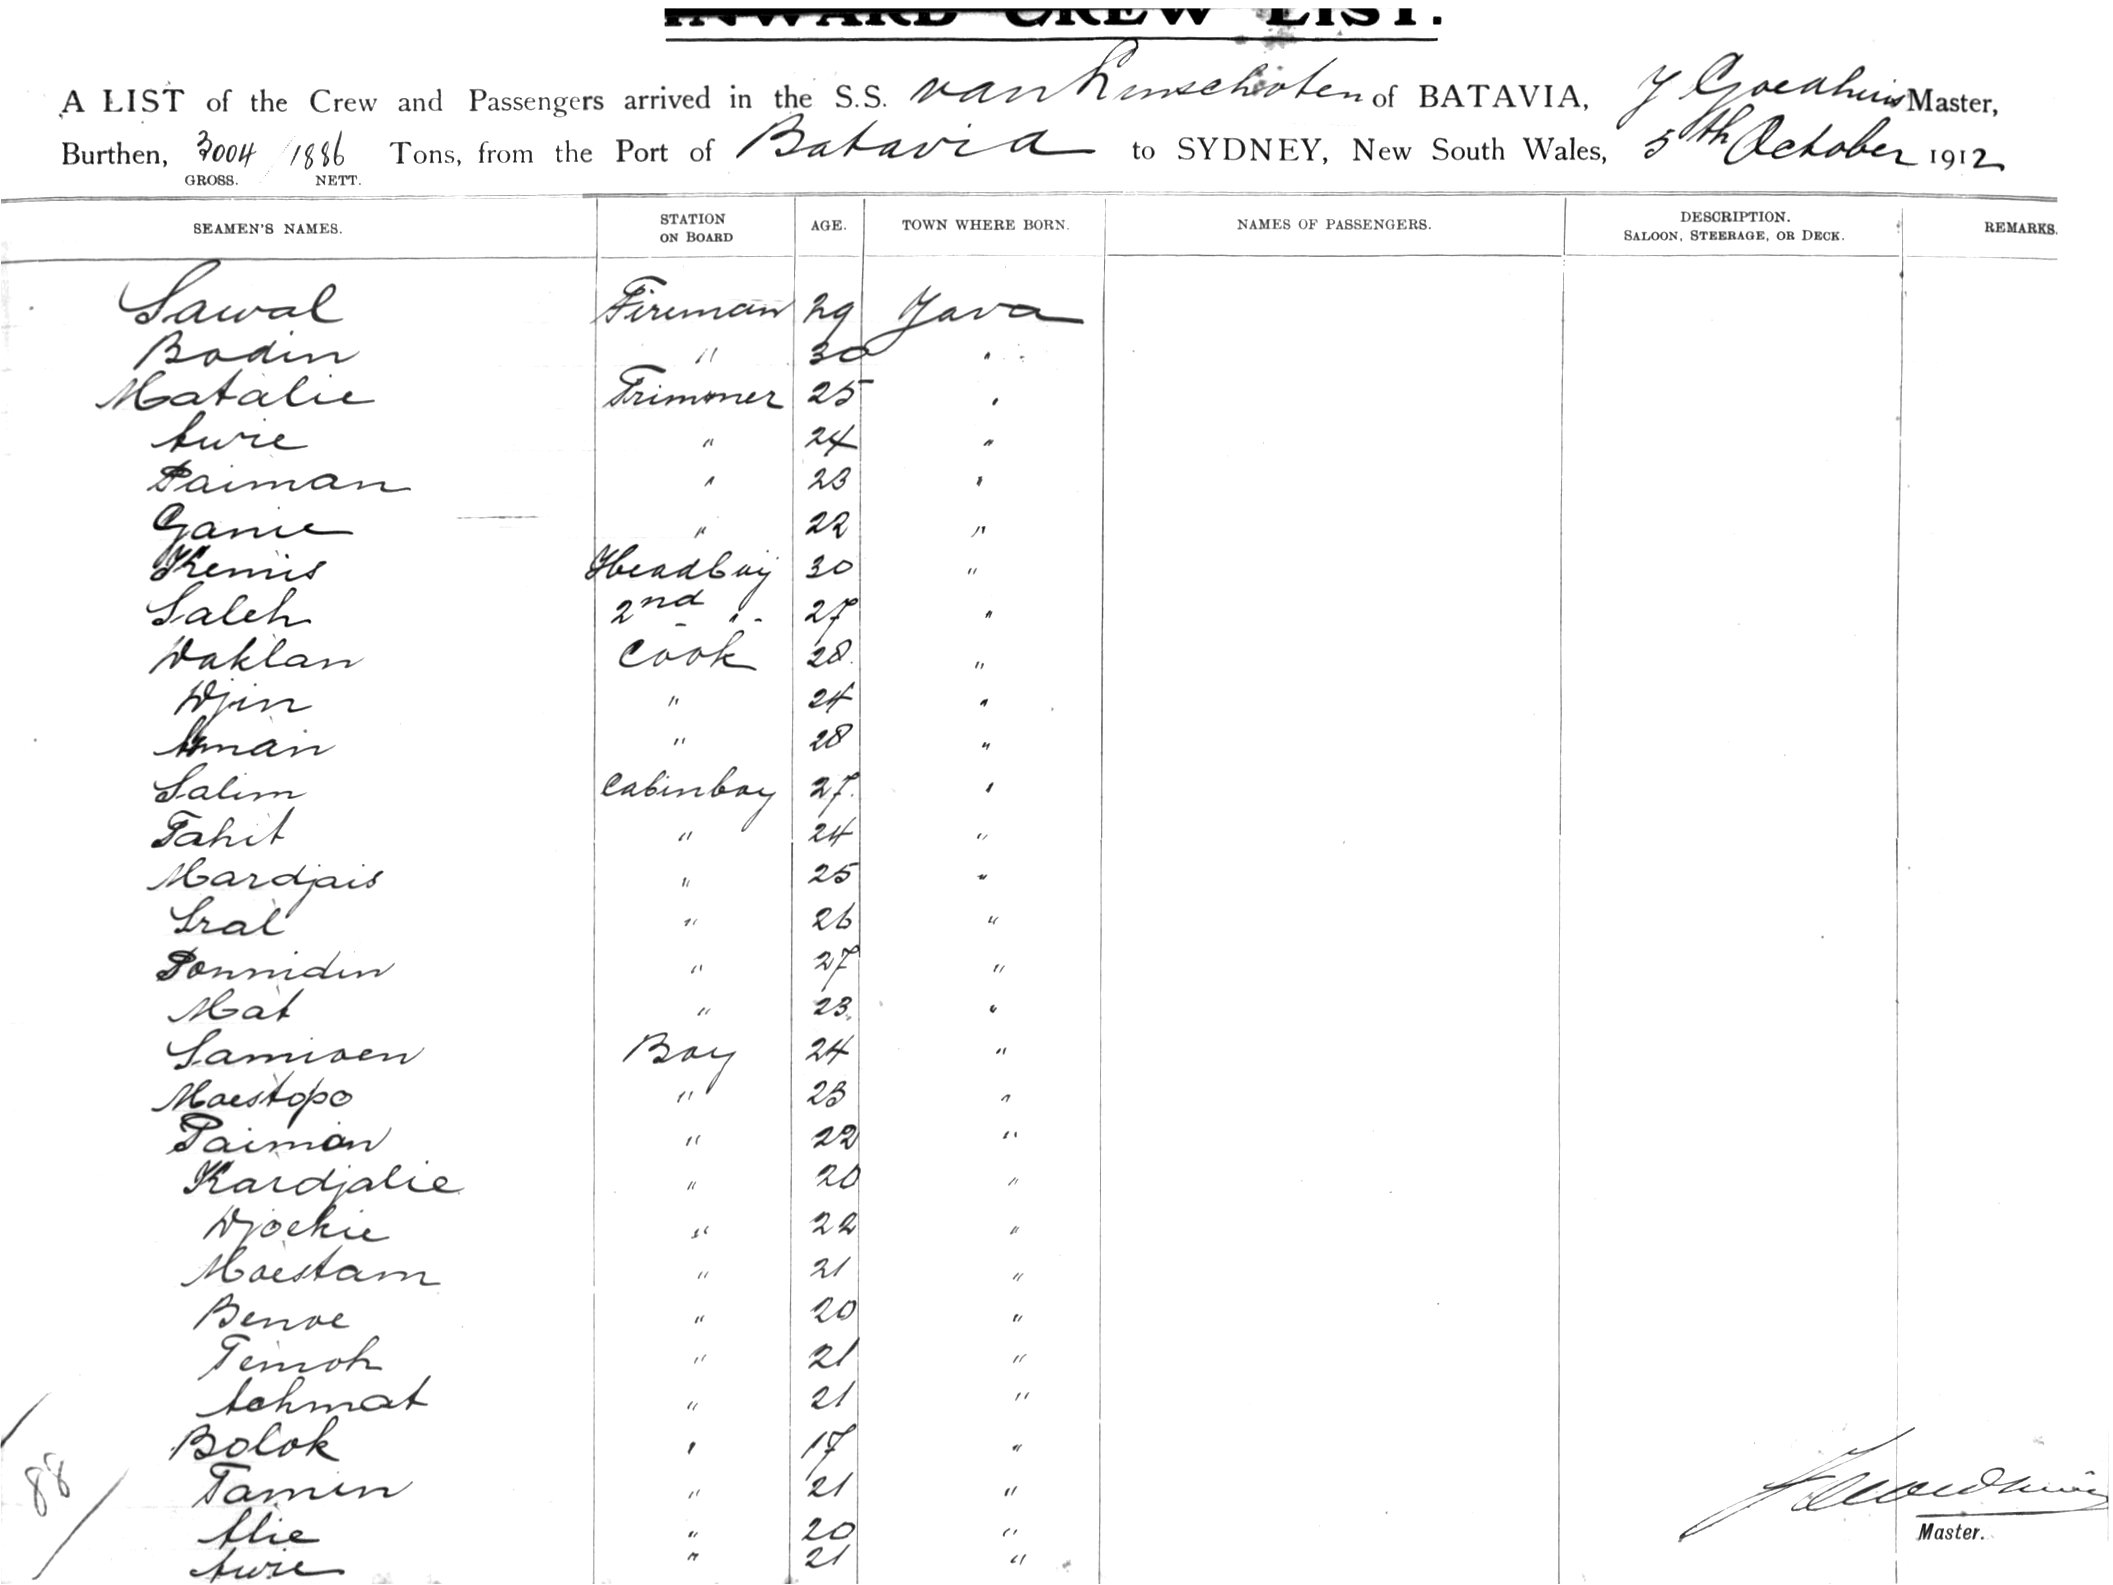 INWARD CREW LIST.
A LIST of the Crew and Passengers arrived in the S.S. van Linschoten of BATAVIA, J Goedhuis Master,
Burthen, 3004 / 1886 Tons, from the Port of Batavia to SYDNEY, New South Wales, 5th October 1912
GROSS. NETT.
SEAMEN'S NAMES. STATION ON BOARD AGE. TOWN WHERE BORN. NAMES OF PASSENGERS. DESCRIPTION. SALOON, STEERAGE, OR DECK. REMARKS.
Sawal Fireman 29 Java
Bodin " 30 "
Matalie Trimmer 25 "
Awie " 24 "
Paiman " 23 "
Ganie " 22 "
Kemis Headboy 30 "
Saleh 2nd " 27 "
Daklan Cook 28 "
Djin " 24 "
Aman " 28 "
Salim Cabinboy 27 "
Tahit " 24 "
Mardjais " 25 "
Sral " 26 "
Ponnidin " 27 "
Mat " 23 "
Samioen Boy 24 "
Moestopo " 23 "
Paiman " 22 "
Kardjalie " 20 "
Djoekie " 22 "
Moestam " 21 "
Benoe " 20 "
Temoh " 21 "
Achmat " 21 "
Bolok " 17 "
Tamin " 21 "
Alie " 20 "
Awie " 21 "
88
Master.